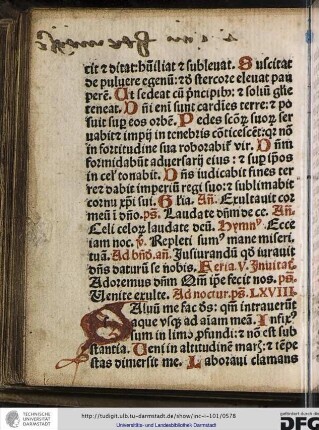 cit ⁊ ditat: hũiliat ⁊ subleuat. Suscitat
de puluere egenũ: ⁊ d̕ stercore eleuat pau
perẽ. Ut sedeat cũ p̃ncipib᷒: ⁊ soliũ glie
teneat. Dñi eni sunt cardies terre: ⁊ po
suit suꝑ eos orbẽ. Pedes scõꝝ suoꝝ ser
uabit ⁊ impij in tenebris cõticescẽt: qꝛ nõ
in fortitudine sua roborabit᷑ vir. Dñm
formidabũt aduersarij eius: ⁊ suꝑ ip̃os
in cel᷑ tonabit. Dñs iudicabit fines ter
re ⁊ dabit imperiũ regi suo: ⁊ sublimabit
cornu xp̃i sui. Glia. Añ. Exultauit cor
meũ i dño. ps. Laudate dñm de ce. Añ.
Celi celoꝝ laudate deũ. Hymn᷒. Ecce
iam noc. ꝟ. Repleti sum᷒ mane miseri.
tuã. Ad bñd. añ. Jusiurandũ qd̕ iurauit
dñs daturũ se nobis. Feria. V. Inuitat.
Adoremus dñm Qm̃ ip̃e fecit nos. ps.
Venite exulte. Ad noctur. ps. LXVIII.
SAluũ me fac de᷒: qm̃ intrauerũt
aque vsqꝫ ad aĩam meã. Infix᷒
sum in limo ꝓfundi: ⁊ nõ est sub
stantia. Ueni in altitudinẽ marꝫ: ⁊ tẽpe
stas dimersit me. Laboraui clamans
TECHNISCHE
UNIVERSITÄT
DARMSTADT
http://tudigit.ulb.tu-darmstadt.de/show/inc-i-101/0578
Universitäts- und Landesbibliothek Darmstadt
gefördert durch die
DFG